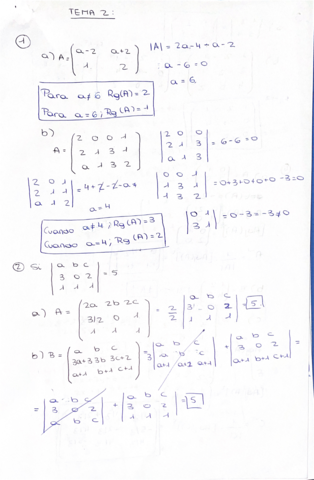 TEMA 2:
①
a) A = ( a-2 a+2 / 1 2 ) |A| = 2a-4-a-2
a-6=0
a=6
Para a≠6 Rg(A)=2
Para a=6; Rg(A)=1
b)
A = ( 2 0 0 1 / 2 1 3 1 / a 1 3 2 ) | 2 0 0 / 2 1 3 / a 1 3 | = 6-6=0
| 2 0 1 / 2 1 1 / a 1 2 | = 4+2-2-a | 0 0 1 / 1 3 1 / 1 3 2 | = 0+3+0+0+0-3=0
a=4
Cuando a≠4; Rg(A)=3 | 0 1 / 3 1 | = 0-3=-3≠0
Cuando a=4; Rg(A)=2
② Si | a b c / 3 0 2 / 1 1 1 | = 5
a) A = ( 2a 2b 2c / 3/2 0 1 / 1 1 1 ) = 2/2 | a b c / 3 0 2 / 1 1 1 | = 5
b) B = ( a b c / 3a+3 3b 3c+2 / a+1 b+1 c+1 ) = 3 | a b c / a b c / a+1 a+1 a+1 | + | a b c / 3 0 2 / a+1 b+1 c+1 | =
= | a b c / 3 0 2 / a b c | + | a b c / 3 0 2 / 1 1 1 | = 5